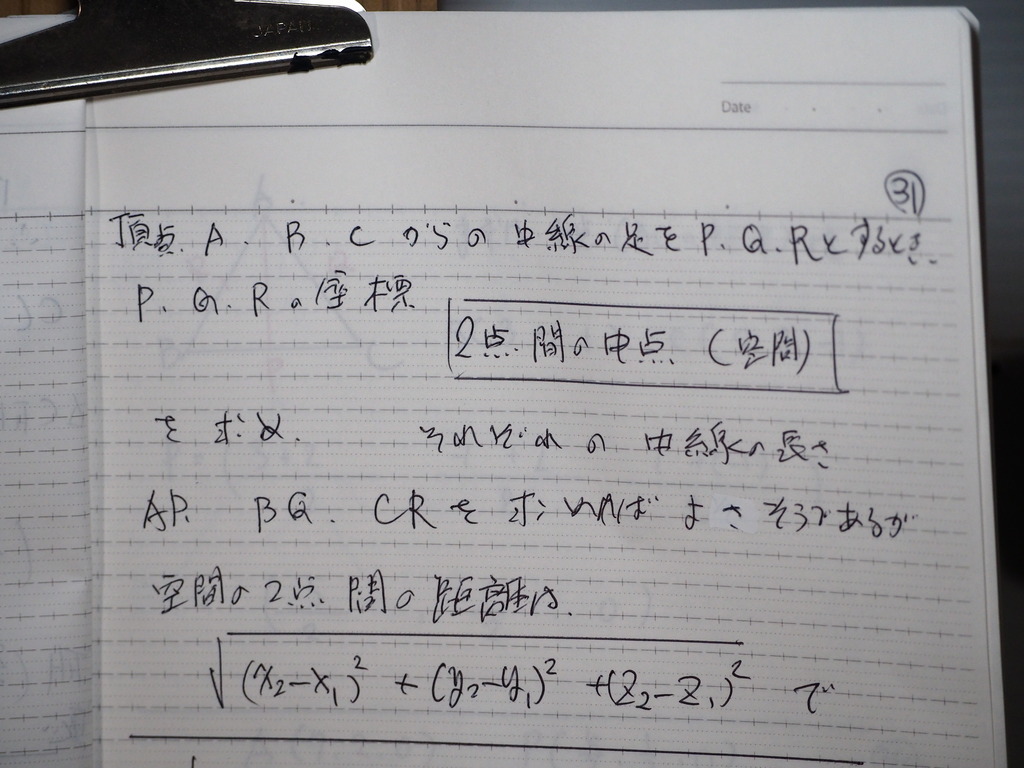 JAPAN
Date
㉛
頂点 A. B. C からの中線の足を P. Q. R とするとき
P. Q. R の座標
2点間の中点 (空間)
を求め. それぞれの中線の長さ
AP. BQ. CR を求めればよさそうであるが
空間の2点間の距離は.
√(x₂-x₁)² + (y₂-y₁)² + (z₂-z₁)² で